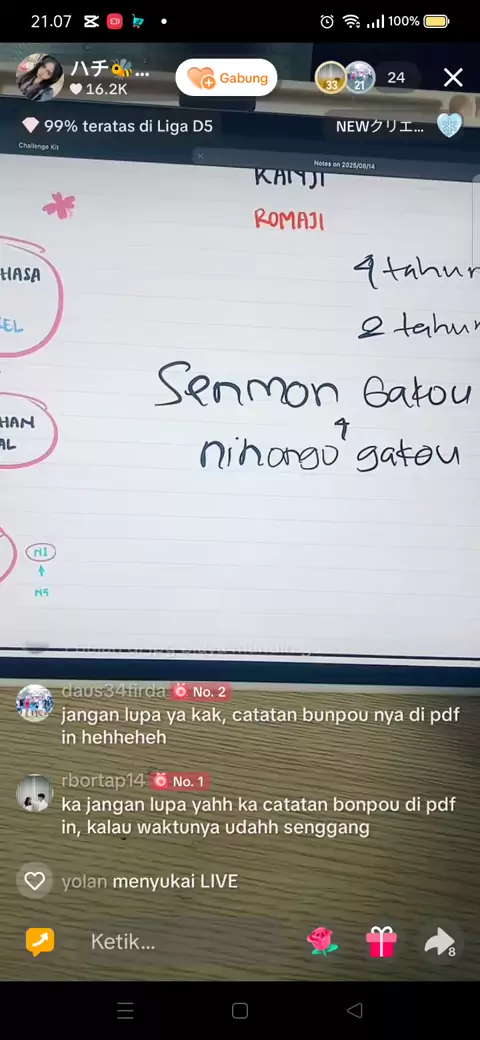 21.07
100%
ハチ🐝...
16.2K
Gabung
33
21
24
99% teratas di Liga D5
NEWクリエ...
Challenge Kit
Notes on 2025/08/14
KANJI
ROMAJI
HASA
4 tahun
KEL
2 tahun
Senmon Gakou
HAN
AL
nihongo gakou
N1
N5
daus34firda No. 2
jangan lupa ya kak, catatan bunpou nya di pdf
in hehheheh
rbortap14 No. 1
ka jangan lupa yahh ka catatan bonpou di pdf
in, kalau waktunya udahh senggang
yolan menyukai LIVE
Ketik...
8